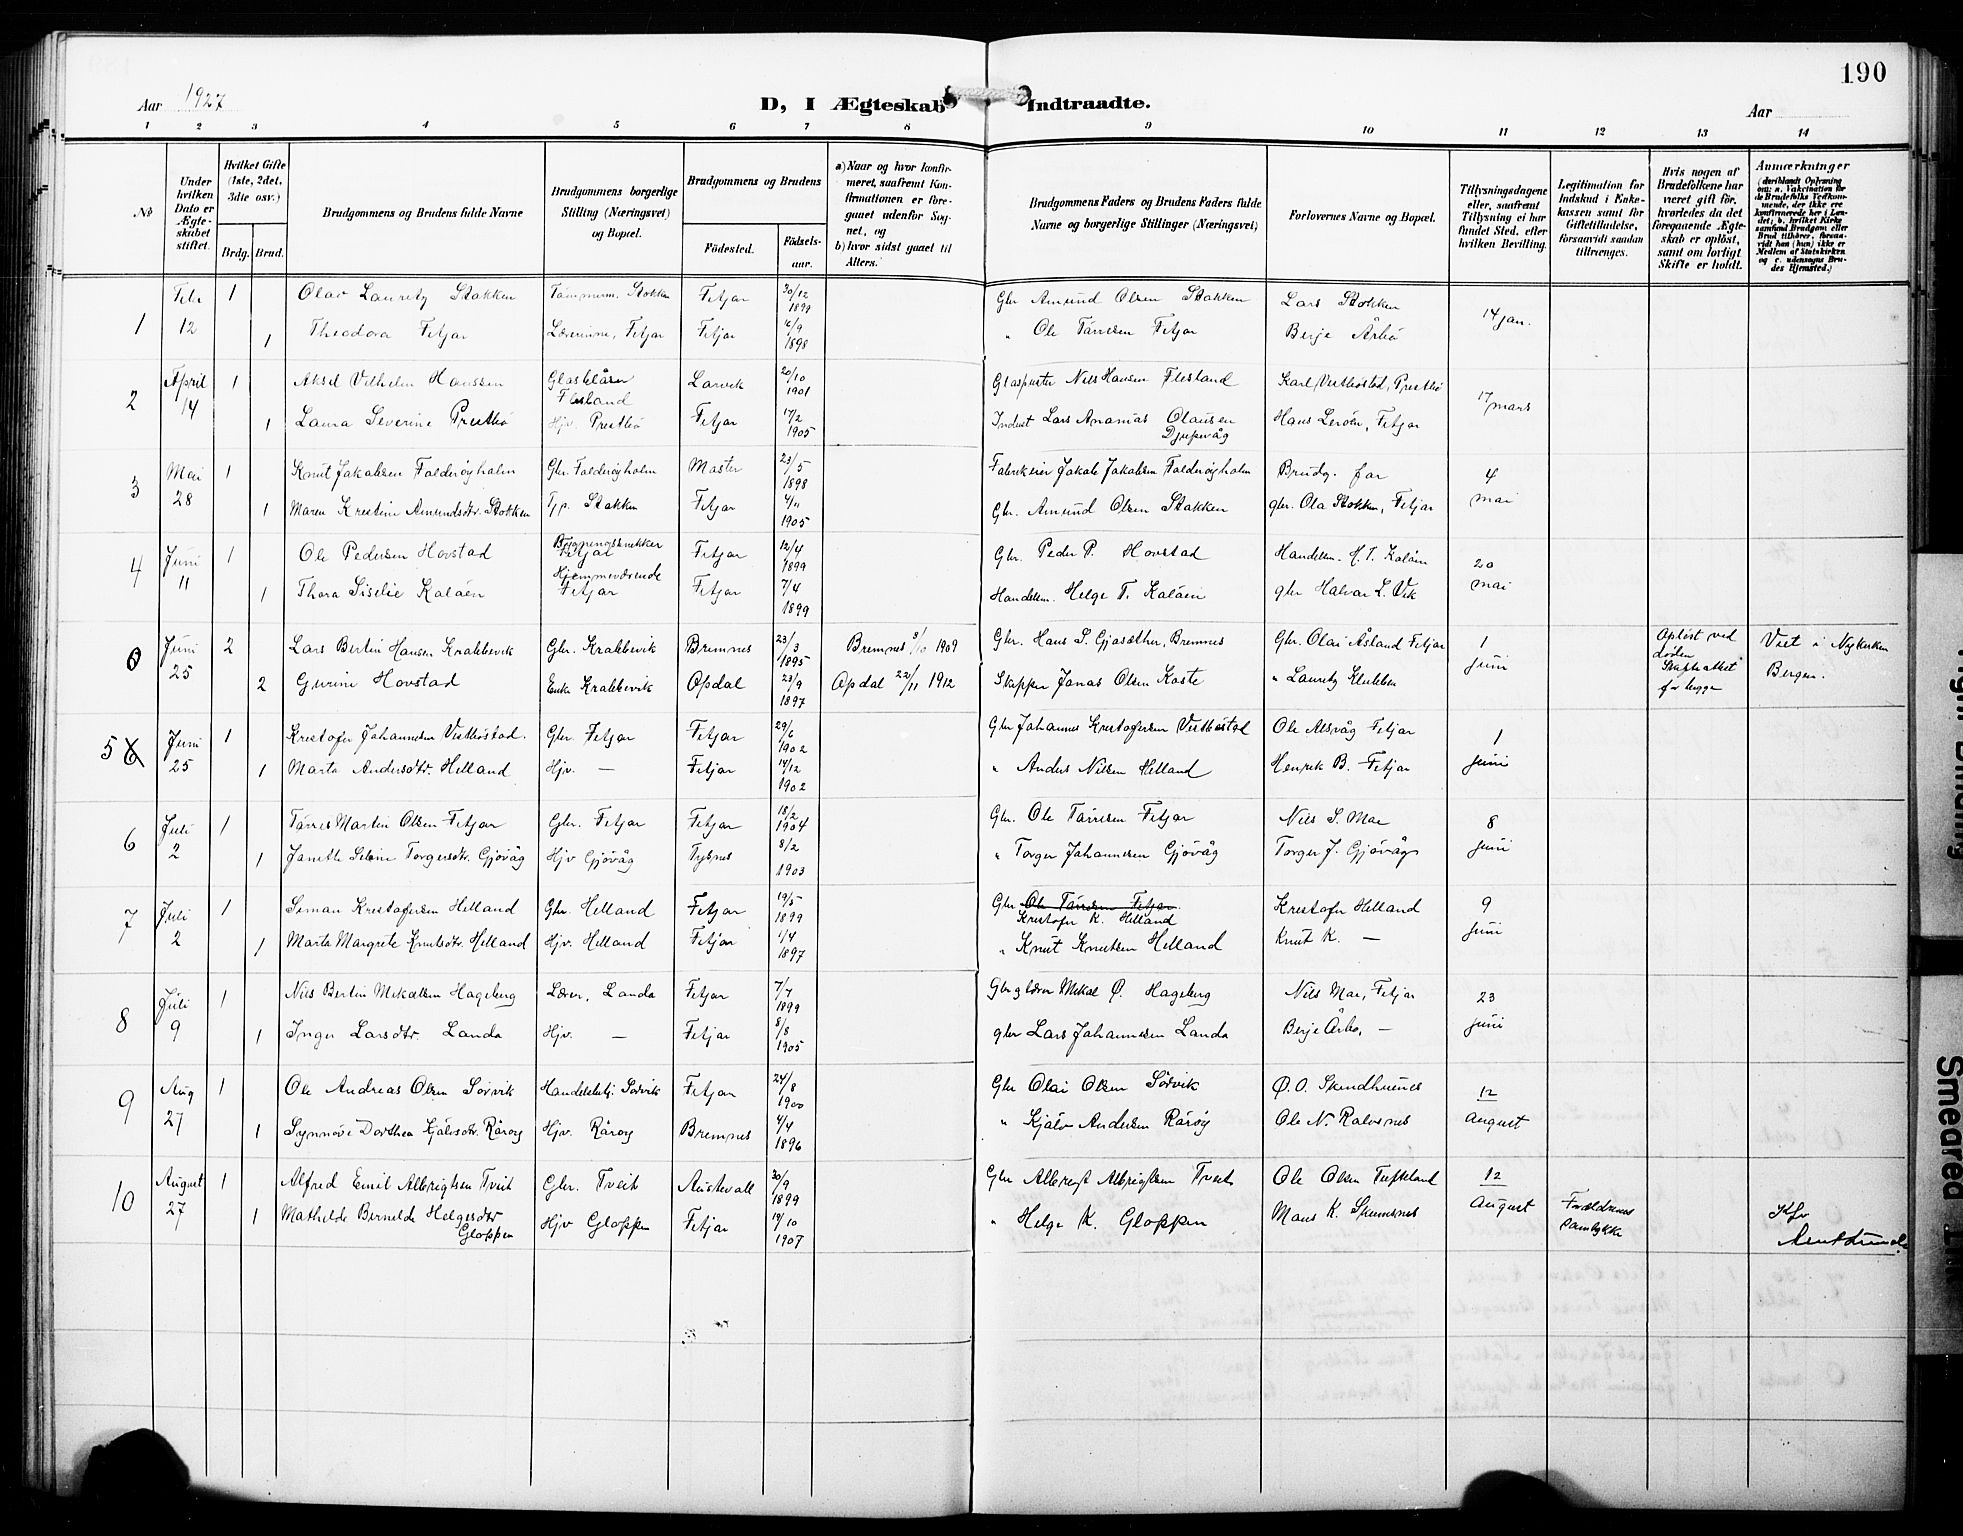 190
Aar 1927
D, I Ægteskab Indtraadte.
Aar
1 2 3 4 5 6 7 8 9 10 11 12 13 14
No
Under hvilken Dato er Ægteskabet stiftet.
Hvilket Gifte (1ste, 2det, 3die osv.)
Brdg. Brud.
Brudgommens og Brudens fulde Navne
Brudgommens borgerlige Stilling (Næringsvei) og Bopæl.
Brudgommens og Brudens
Fødested. Fødselsaar.
a) Naar og hvor konfirmeret, saafremt Konfirmationen er foregaaet udenfor Sognet, og
b) hvor sidst gaaet til Alters.
Brudgommens Faders og Brudens Faders fulde Navne og borgerlige Stillinger (Næringsvei)
Forlovernes Navne og Bopæl.
Tillysningsdagene eller, saafremt Tillysning ei har fundet Sted, efter hvilken Bevilling.
Legitimation for Indskud i Enkekassen samt for Giftetilladelse, forsaavidt saadan tiltrænges.
Hvis nogen af Brudefolkene har været gift før, hvorledes da det foregaaende Ægteskab er opløst, samt om lovligt Skifte er holdt.
Anmærkninger
(deriblandt Oplysning om: a. Vakcination for de Brudefolks Vedkommende, der ikke ere konfirmerede her i Landet; b. hvilket Kirkesamfund Brudgom eller Brud tilhører, forsaavidt han (hun) ikke er Medlem af Statskirken og c. udensogns Brudes Hjemsted.)
1 Febr 12 1 Olav Lauritz Stokken Tømmerm. Stokken Fitjar 30/12 1899 Gbr Amund Olsen Stokken Lars Stokken 14 jan.
1 Theodora Fitjar Lærerinne, Fitjar Fitjar 16/9 1898 " Ole Tørresen Fitjar Berje Årbø
2 April 14 1 Aksel Vilhelm Hanssen Glasblåser Flesland Larvik 20/10 1901 Glaspuster Nils Hansen Flesland Karl Vestbøstad, Prestbø 17 mars
1 Laura Severine Prestbø Hjv. Prestbø Fitjar 17/2 1905 Indust Lars Ananias Olausen Djupevåg Hans Lerøen, Fitjar
3 Mai 28 1 Knut Jakobsen Folderøyholm Gbr. Folderøyholm Moster 23/5 1898 Fabrikeier Jakob Jakobsen Folderøyholm Brudg. far 4 mai
1 Maren Kristine Amundsdtr. Stokken Tjp. Stokken Fitjar 4/11 1905 Gbr. Amund Olsen Stokken gbr. Ola Stokken, Fitjar
4 Juni 11 1 Ole Pedersen Hovstad Bygningssnekker Fitjar Fitjar 12/4 1899 Gbr. Peder P. Hovstad Handelsm. H. T. Kaløen 20 mai
1 Thora Siselie Kaløen Hjemmeværende Fitjar Fitjar 7/4 1899 Handelsm. Helge T. Kaløen gbr Halvar L. Vik
0 Juni 25 2 Lars Bertin Hansen Krabbevik Gbr. Krabbevik Bremnes 23/3 1895 Bremnes 3/10 1909 Gbr. Hans S. Gjosæther, Bremnes Gbr. Olai Åsland Fitjar 1 juni Opløst ved døden Skifteattest for begge Viet i Nykirken Bergen.
2 Gurine Hovstad Enke Krabbevik Opdal 23/9 1897 Opdal 22/11 1912 Skipper Jonas Olsen Koste " Lauritz Klubben
5 6 Juni 25 1 Kristofer Johannesen Vestbøstad. Gbr Fitjar Fitjar 29/6 1902 Gbr Johannes Kristofersen Vestbøstad Ole Alsvåg Fitjar 1 juni
1 Marta Andersdtr. Helland Hjv. — Fitjar 14/12 1902 " Anders Nilsen Helland Henrik B. Fitjar
6 Juli 2 1 Tørres Martin Olsen Fitjar Gbr. Fitjar Fitjar 18/2 1904 Gbr. Ole Tørresen Fitjar Nils S. Moe 8 juni
1 Janette Seline Torgersdtr. Gjøvåg Hjv Gjøvåg Tysnes 8/2 1903 " Torger Johannesen Gjøvåg Torger J. Gjøvåg
7 Juli 2 1 Simon Kristofersen Helland Gbr. Helland Fitjar 19/5 1899 Gbr Ole Tørresen Fitjar. Kristofer K. Helland Kristofer Helland 9 juni
1 Marta Margrete Knutsdtr. Helland Hjv. Helland Fitjar 1/4 1897 " Knut Knutsen Helland Knut K. —
8 Juli 9 1 Nils Bertin Mikalsen Hageberg Lærer, Landa Fitjar 7/7 1899 Gbr og lærer Mikal Ø. Hageberg Nils Moe, Fitjar 23 juni
1 Inger Larsdtr. Landa Hjv. — Fitjar 8/8 1905 gbr Lars Johannesen Landa Berje Årbø, —
9 Aug 27 1 Ole Andreas Olsen Sørvik Handelsbtj. Sørvik Fitjar 24/8 1900 Gbr Olai Olsen Sørvik Ø. O. Skindhuenes 12 august
1 Synnøve Dorthea Kjølvsdtr. Rårøy Hjv. Rårøy Bremnes 4/4 1896 " Kjølv Andersen Rårøy Ole N. Kalvenes
10 August 27 1 Alfred Emil Albrigtsen Tveit Gbr. Tveit Austevoll 30/9 1899 Gbr Albregt Albrigtsen Tveit Ole Olsen Tufteland 12 August
1 Mathilde Bernelde Helgesdtr Gloppen Hjv Gloppen Fitjar 19/10 1907 " Helge K. Gloppen Mons K. Skumsnes Forældrenes samtykke